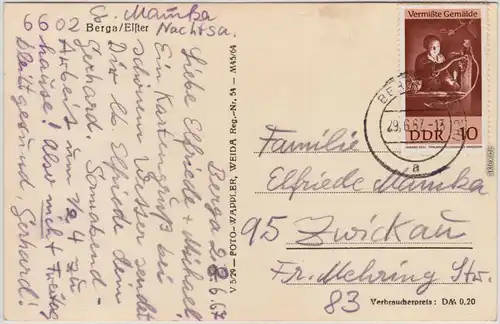 Gh. Mamka
6602 Berga/Elster Nachtsa.
Berga 28.6.67
Liebe Elfriede + Michael!
Ein Kartengruß bei
schönem Wetter sendet
Dir lb. Elfriede dein
Gerhard. Sonnabend
Arbeit um 1/2 4 zu
hause! Also nicht Freitag
Bleibt gesund, Gerhard!
V 5/29 - FOTO-WAPPLER, WEIDA Reg.-Nr. 54 - M45/64
Vermißte Gemälde
DDR 10
BER
29.6.67.-17
a
Familie
Elfriede Mamka
95 Zwickau
Fr. Mehring Str.
83
Verbraucherpreis: DM 0,20